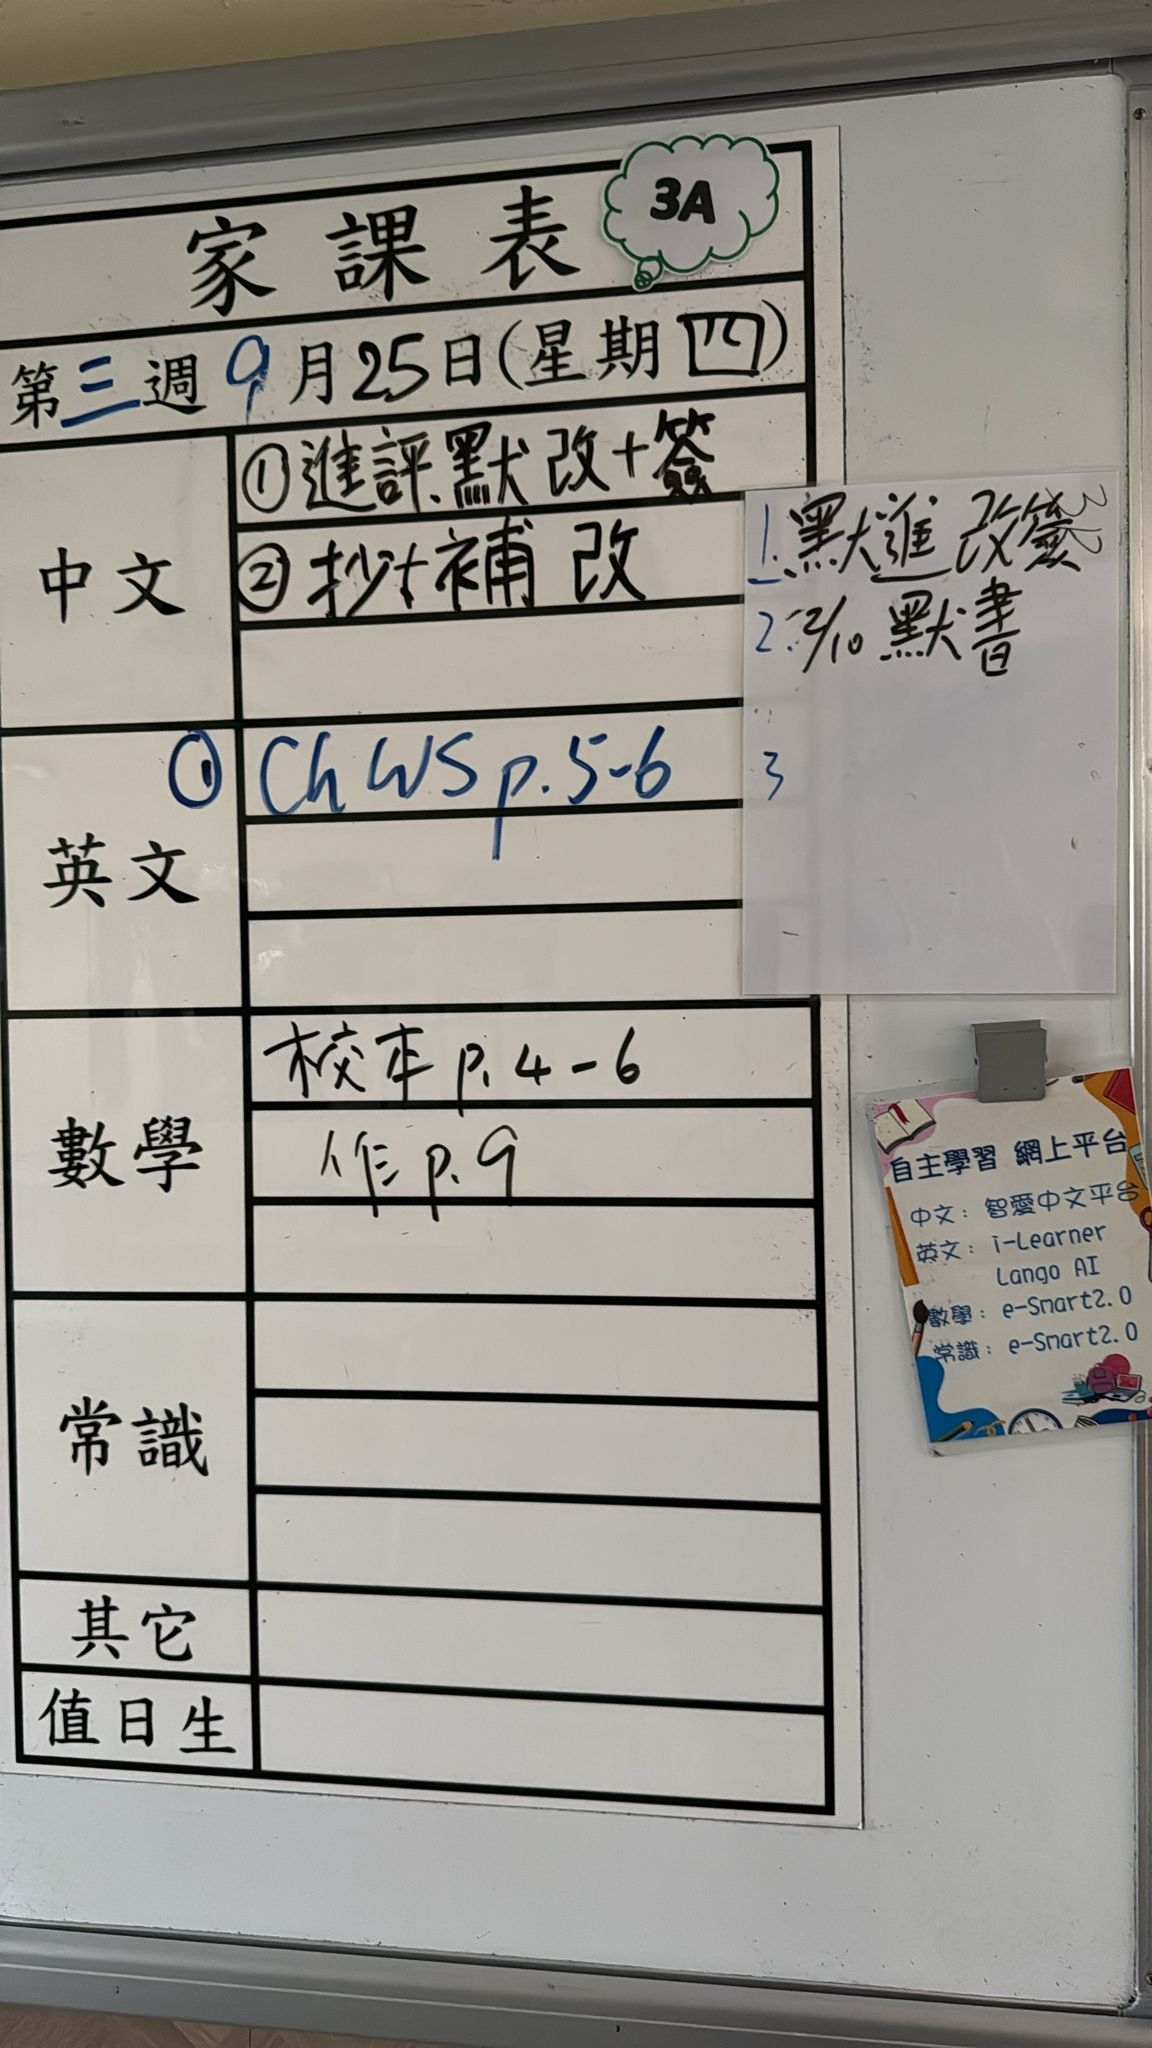 家課表
3A
第三週 9月25日(星期四)
中文
①進評默改+簽
②抄補改
英文
① Ch WS p.5-6
數學
校本 p.4-6
作 p.9
常識
其它
值日生
1.默進改簽
2. 2/10 默書
3
自主學習 網上平台
中文：智愛中文平台
英文：i-Learner
Lango AI
數學：e-Smart2.0
常識：e-Smart2.0